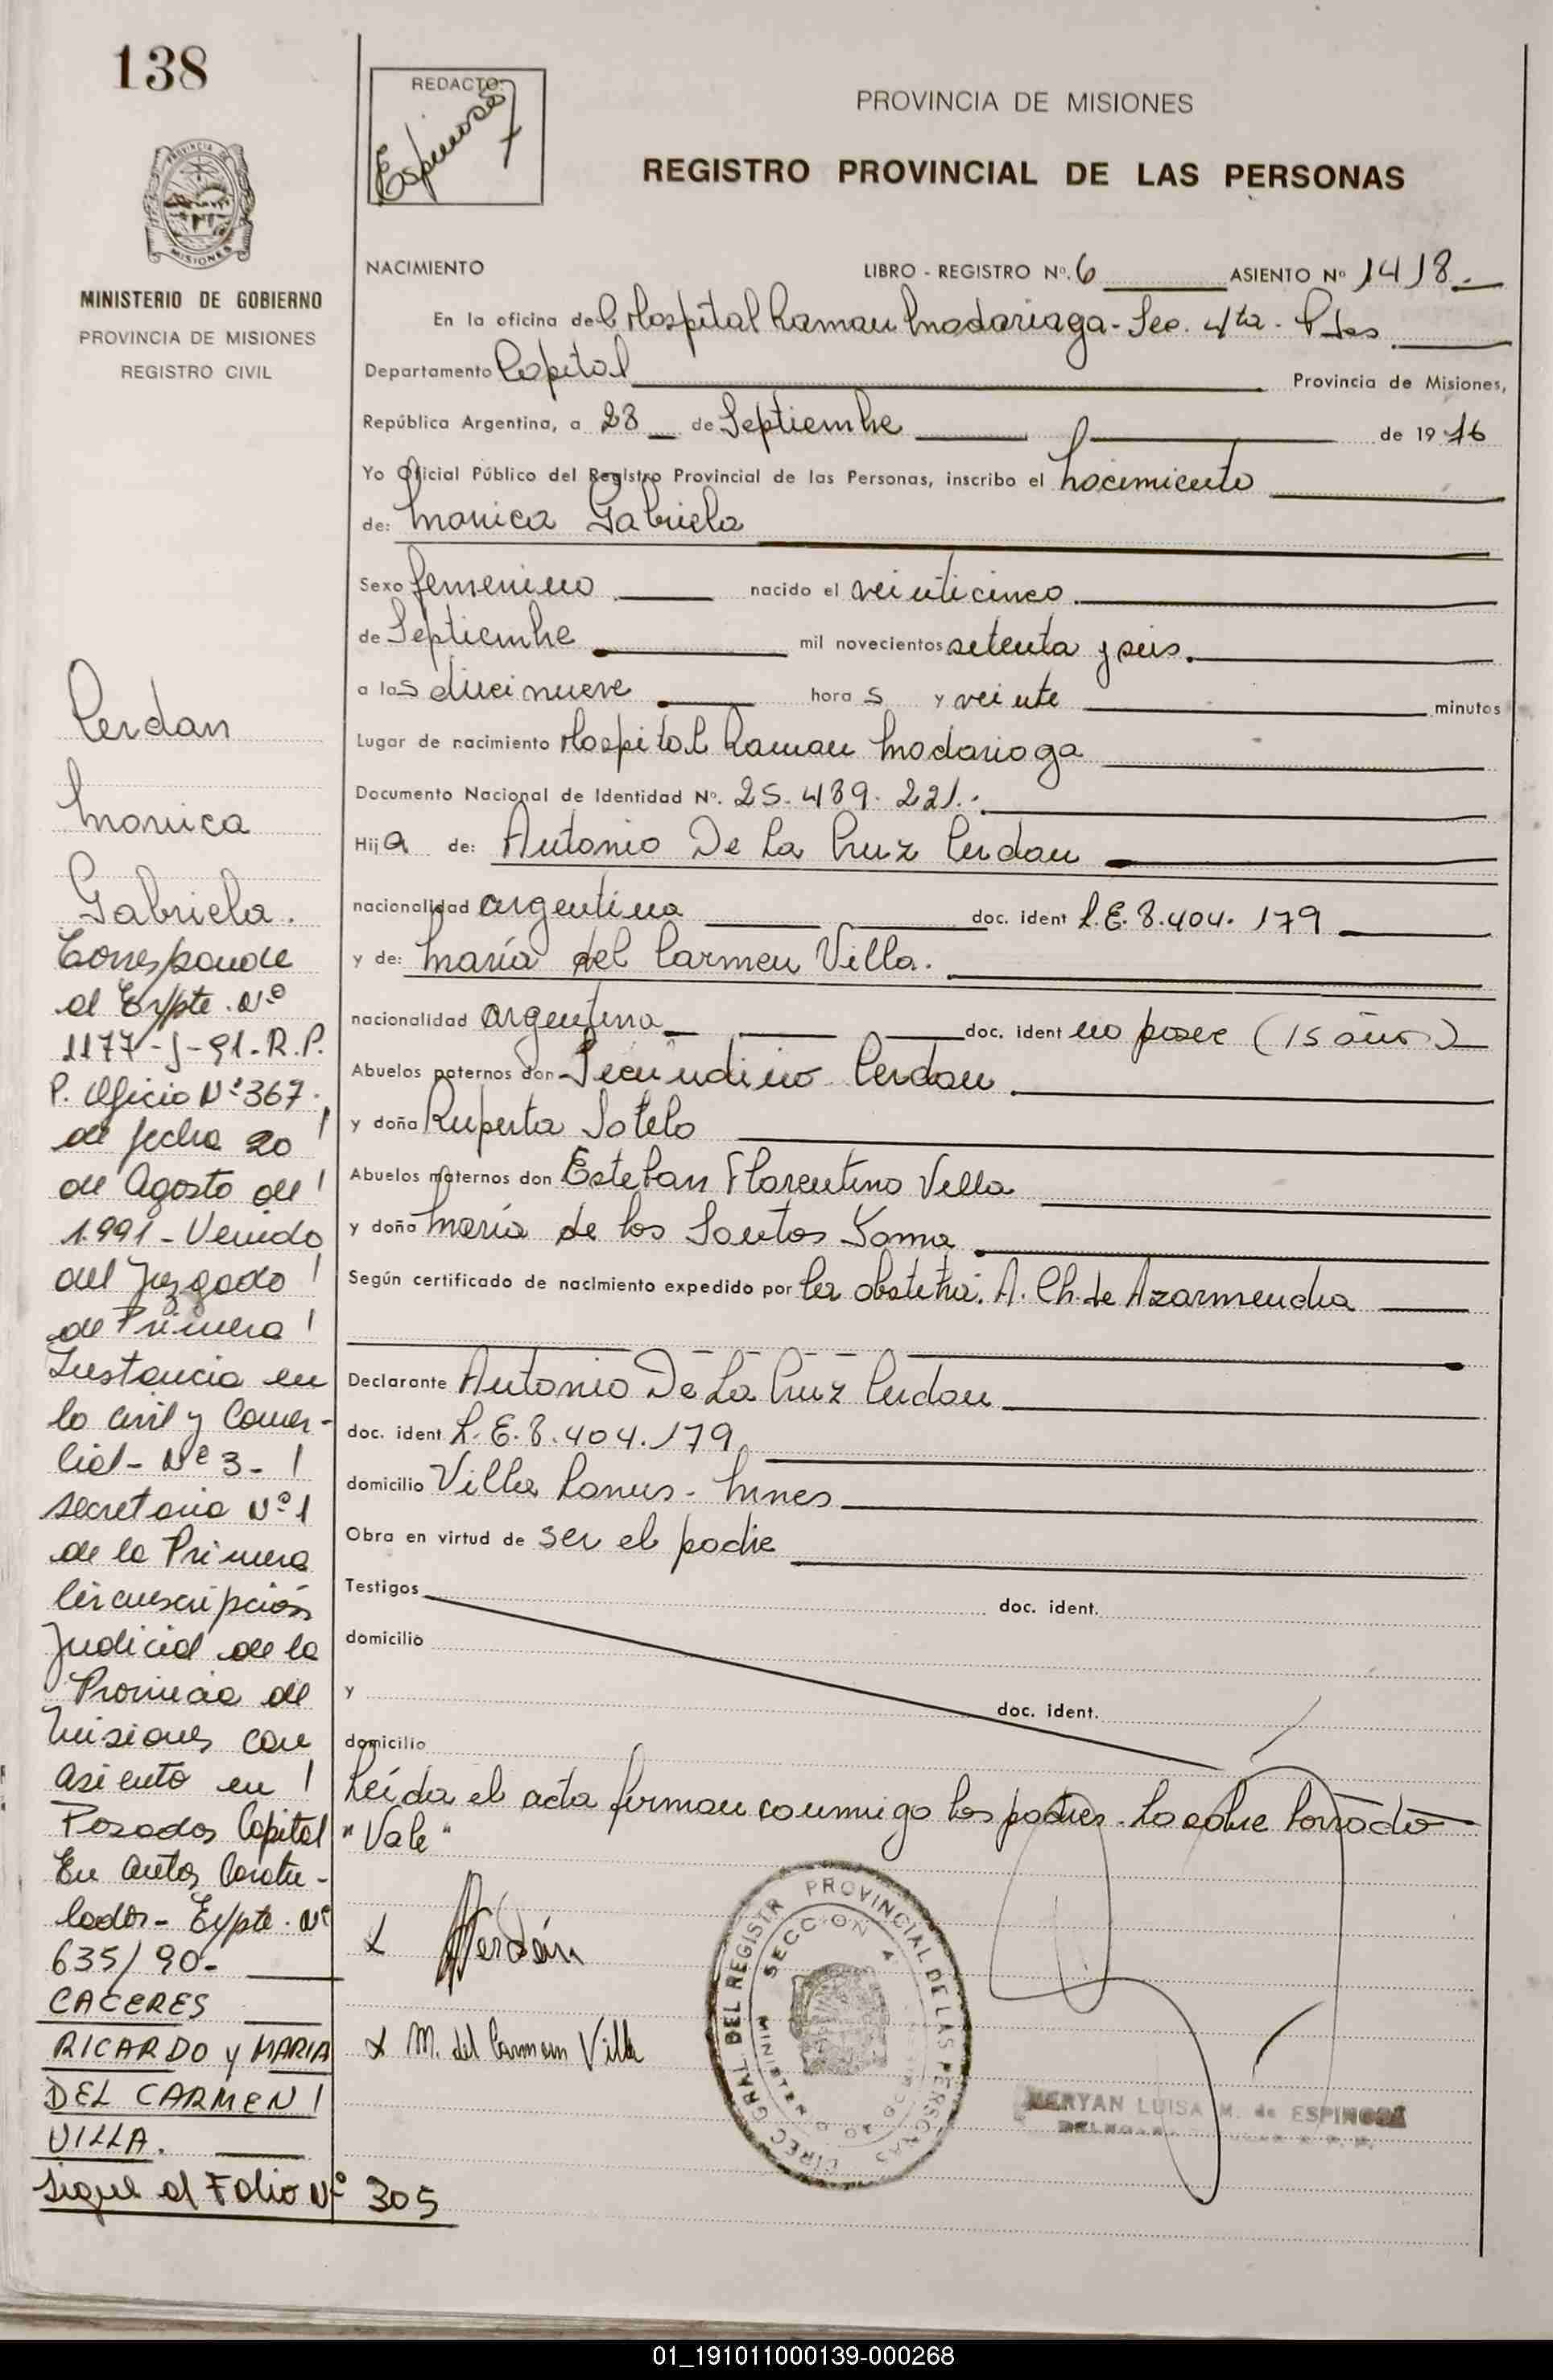 138
MINISTERIO DE GOBIERNO
PROVINCIA DE MISIONES
REGISTRO CIVIL
REDACTO:
Espinosa
PROVINCIA DE MISIONES
REGISTRO PROVINCIAL DE LAS PERSONAS
NACIMIENTO LIBRO - REGISTRO Nº. 6 ASIENTO Nº 1418.-
En la oficina del Hospital Ramon Madariaga - Sec. 4ta - Pdas
Departamento Capital Provincia de Misiones,
República Argentina, a 28 de Septiembre de 1976
Yo Oficial Público del Registro Provincial de las Personas, inscribo el nacimiento
de: Monica Gabriela
Sexo femenino nacido el veinticinco
de Septiembre mil novecientos setenta y seis.
a las diecinueve horas y veinte minutos
Lugar de nacimiento Hospital Ramon Madariaga
Documento Nacional de Identidad Nº. 25.489.221.-
Hija de: Antonio De La Cruz Cerdan
nacionalidad argentina doc. ident L.E. 8.404.179
y de: María del Carmen Villa.
nacionalidad argentina doc. ident no posee (15 años)
Abuelos paternos don Secundino Cerdan
y doña Ruperta Sotelo
Abuelos maternos don Esteban Florentino Villa
y doña María de los Santos
Según certificado de nacimiento expedido por la obstetra. A. Ch. de Azarmendia
Declarante Antonio De La Cruz Cerdan
doc. ident L.E. 8.404.179
domicilio Villa Lanus - Mnes
Obra en virtud de ser el padre
Testigos doc. ident.
domicilio
y doc. ident.
domicilio
Leída el acta firman conmigo los padres. Lo sobre borrado
"Vale"
Cerdán
M. del Carmen Villa
DIREC GRAL DEL REGISTR PROVINCIAL DE LAS PERSONAS
SECCION 4
MERYAN LUISA M. de ESPINOSA
Cerdan
Monica
Gabriela.
Corresponde
al Expte. Nº
1177-J-91-R.P.
P. Oficio Nº 367.
de fecha 20
de Agosto de
1.991 - Venido
del Juzgado
de Primera
Instancia en
lo civil y Comer-
cial - Nº 3 -
secretaria Nº 1
de la Primera
Circunscripción
Judicial de la
Provincia de
Misiones con
asiento en
Posadas Capital
En autos Caratu-
lados - Expte. Nº
635/90-
CACERES
RICARDO y MARIA
DEL CARMEN
VILLA.
Sigue al Folio Nº 305
01_191011000139-000268